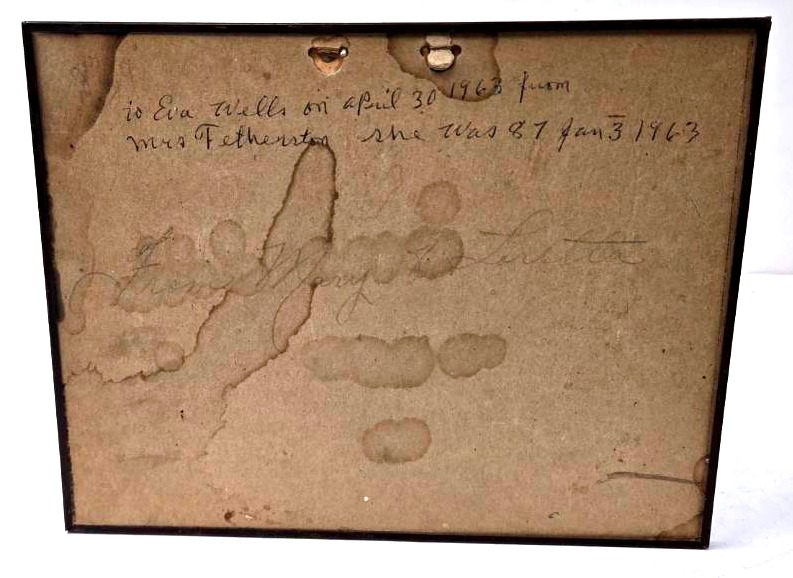 to Eva Wells on april 30 1963 from
mrs Fetherston she Was 87 Jan 3 1963
From Mary & Loretta